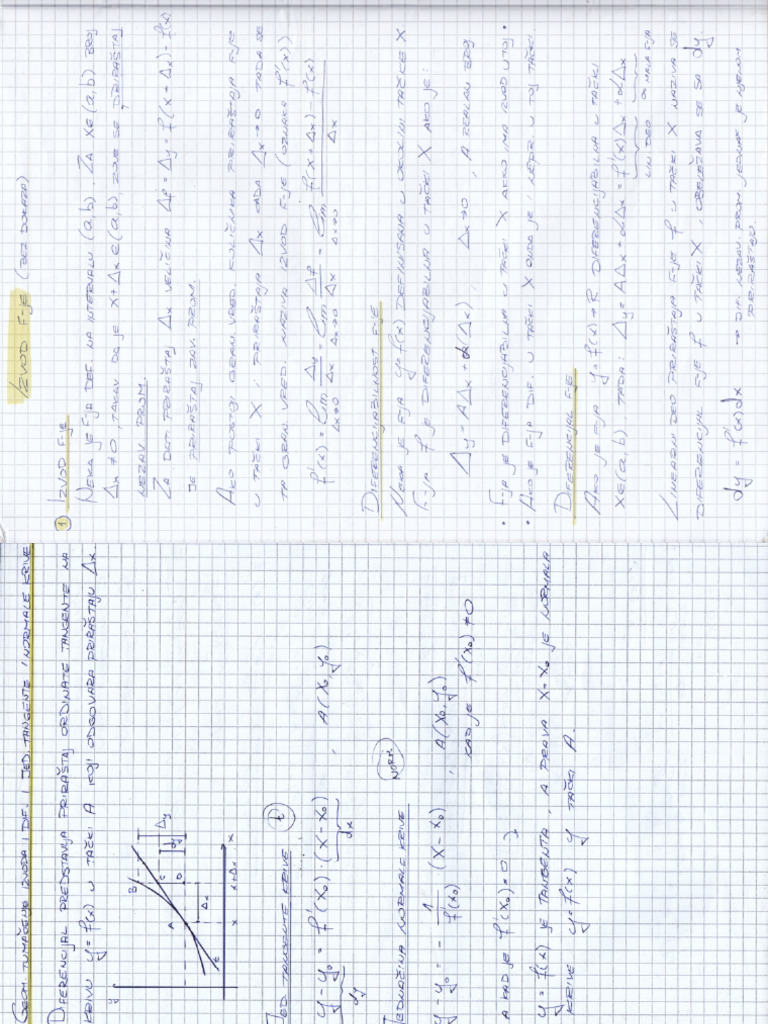 IZVOD F-JE (BEZ DOKAZA)
① IZVOD F-JE
NEKA JE F-JA DEF. NA INTERVALU (a,b). ZA X∈(a,b) BROJ
Δx ≠ 0, TAKAV DA JE X+Δx ∈(a,b), ZOVE SE PRIRAŠTAJ
NEZAV. PROM.
ZA DAT PRIRAŠTAJ Δx VELIČINA Δf = Δy = f(x+Δx) - f(x)
JE PRIRAŠTAJ ZAV. PROM.
AKO POSTOJI GRAN. VRED. KOLIČNIKA PRIRAŠTAJA F-JE
U TAČKI X I PRIRAŠTAJA Δx KADA Δx→0 TADA SE
TA GRAN. VRED. NAZIVA IZVOD F-JE (OZNAKA f'(x))
f'(x) = lim Δx→0 Δy/Δx = lim Δx→0 Δf/Δx = lim Δx→0 (f(x+Δx) - f(x))/Δx
DIFERENCIJABILNOST F-JE
NEKA JE F-JA y=f(x) DEFINISANA U OKOLINI TAČKE X.
F-JA f JE DIFERENCIJABILNA U TAČKI X AKO JE:
Δy = AΔx + α(Δx), Δx→0, A REALAN BROJ
• F-JA JE DIFERENCIJABILNA U TAČKI X AKKO IMA IZVOD U TOJ •
• AKO JE F-JA DIF. U TAČKI X ONDA JE NEPR. U TOJ TAČKI.
DIFERENCIJAL F-JE
AKO JE F-JA y=f(x)→R DIFERENCIJABILNA U TAČKI
X∈(a,b) TADA: Δy = AΔx + αΔx = f'(x)Δx + αΔx
LIN DEO α MALA F-JA
LINEARNI DEO PRIRAŠTAJA F-JE f U TAČKI X NAZIVA SE
DIFERENCIJAL F-JE f U TAČKI X, OBELEŽAVA SE SA dy
dy = f'(x)dx → DIF. NEZAV. PROM JEDNAK JE NJENOM
PRIRAŠTAJU.
GEOM. TUMAČENJE IZVODA I DIF. I JED. TANGENTE I NORMALE KRIVE
DIFERENCIJAL PREDSTAVLJA PRIRAŠTAJ ORDINATE TANGENTE NA
KRIVU y=f(x) U TAČKI A KOJI ODGOVARA PRIRAŠTAJU Δx.
y
B
C
Δy
dy
A
D
Δx
t
x
x+Δx
x
JED. TANGENTE KRIVE (t)
y-y₀ = f'(x₀)·(x-x₀), A(x₀,y₀)
dy dx
JEDNAČINA NORMALE KRIVE (NORM.)
y-y₀ = - 1/f'(x₀) (x-x₀), A(x₀,y₀)
KAD JE f'(x₀)≠0
A KAD JE f'(x₀)=0,
y=f(x) JE TANGENTA, A PRAVA X=X₀ JE NORMALA
KRIVE y=f(x) U TAČKI A.